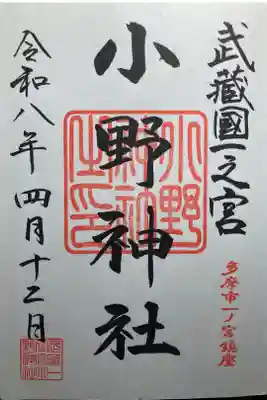 武蔵國一之宮
多摩市一ノ宮鎮座
小野神社
令和八年四月十二日